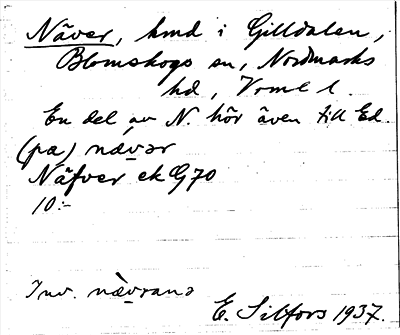 Näver, hmd i Gilldalen,
Blomskogs sn, Nordmarks
hd, Vrml l.
En del av N. hör även till Ed.
(pa) nævər
Näfver ek G70
10:-
Inv. nævrana
E. Silfors 1937.